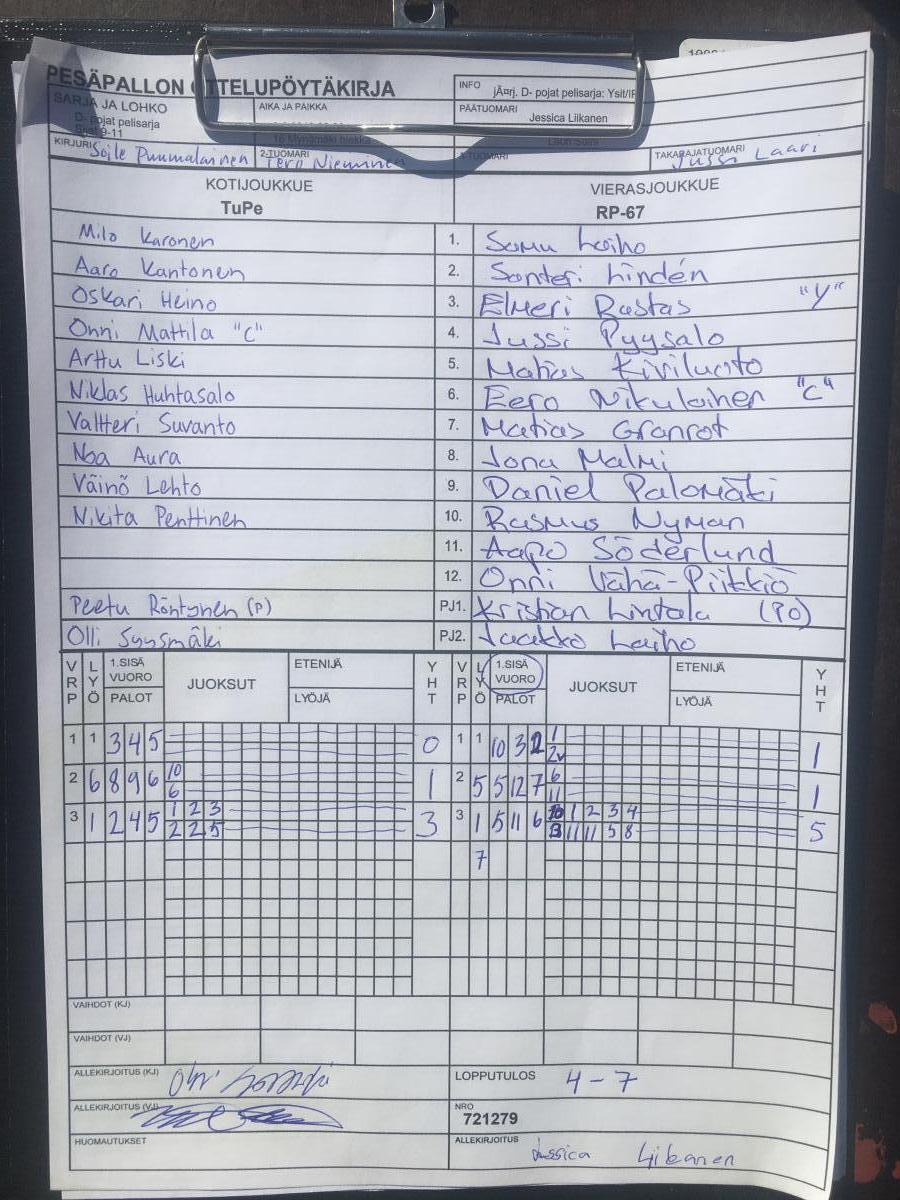 PESÄPALLON OTTELUPÖYTÄKIRJA
INFO jÃ¤rj. D- pojat pelisarja: Ysit/
SARJA JA LOHKO AIKA JA PAIKKA PÄÄTUOMARI
D- pojat pelisarja Jessica Liikanen
9-11
KIRJURI Soile Puumalainen 2-TUOMARI Tero Nieminen TUOMARI TAKARAJATUOMARI Jussi Laari
KOTIJOUKKUE VIERASJOUKKUE
TuPe RP-67
Milo Karonen 1. Samu Laiho
Aaro Kantonen 2. Santeri Lindén
Oskari Heino 3. Elmeri Rastas "Y"
Onni Mattila "C" 4. Jussi Pyysalo
Arttu Liski 5. Matias Kiviluoto
Niklas Huhtasalo 6. Eero Nikulainen "C"
Valtteri Suvanto 7. Matias Granrot
Noa Aura 8. Jona Malmi
Väinö Lehto 9. Daniel Palomäki
Nikita Penttinen 10. Rasmus Nyman
11. Aapo Söderlund
12. Onni Vähä-Piikkiö
Peetu Röntynen (P) PJ1. Kristian Lintala (PO)
Olli Syysmäki PJ2. Jaakko Laiho
VRP LYÖ 1.SISÄ VUORO PALOT JUOKSUT ETENIJÄ LYÖJÄ YHT VRP LYÖ 1.SISÄ VUORO PALOT JUOKSUT ETENIJÄ LYÖJÄ YHT
1 1 3 4 5 0 1 1 10 3 2 1 1
2v
2 6 8 9 6 10 1 2 5 5 12 7 6 1
6 11
3 1 2 4 5 1 2 3 3 3 1 5 11 6 1 2 3 4 5
2 2 5 11 11 5 8
7
VAIHDOT (KJ)
VAIHDOT (VJ)
ALLEKIRJOITUS (KJ) LOPPUTULOS 4-7
ALLEKIRJOITUS (VJ) NRO 721279
HUOMAUTUKSET ALLEKIRJOITUS Jessica Liikanen